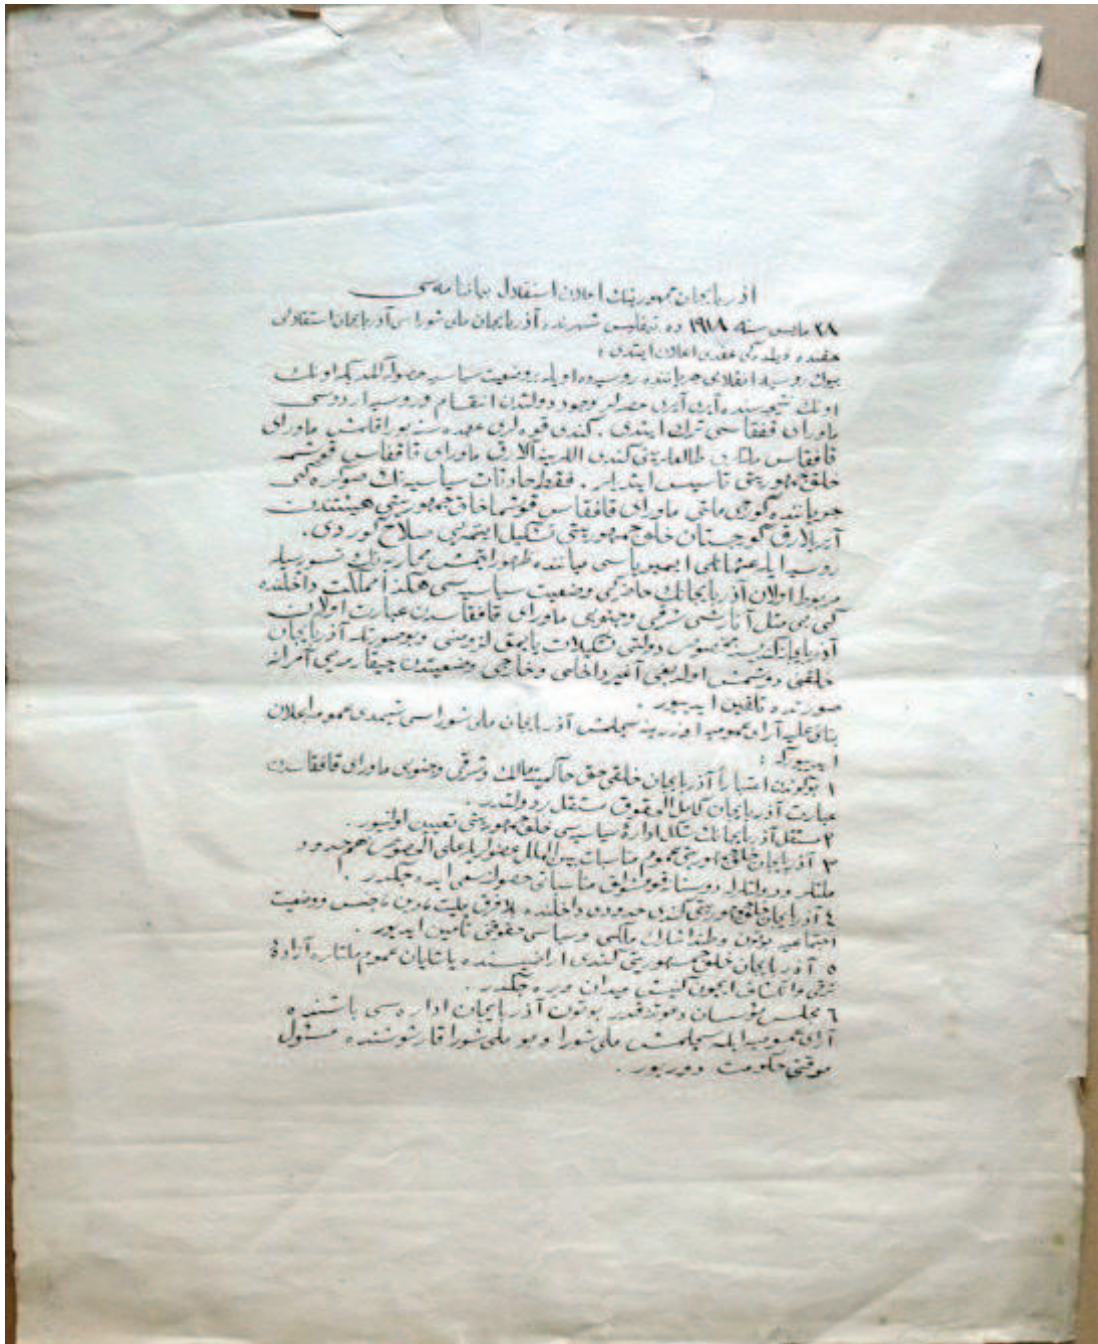 آذربایجان جمهوریتنك اعلان استقلال بیاننامه‌سی
٢٨ مایس سنه ١٩١٨ ده تیفلیس شهرنده آذربایجان ملی شوراسی آذربایجان استقلالی
حقنده بیله كی عقدی اعلان ایتدی :
بیوك روسیه انقلابی جریاننده روسیه‌ده اویله بر وضعیت سیاسیه حصوله گلدی كه اونك
اونك نتیجه‌سنده آیری آیری حصه‌لر وجود دولتدن انقسام و روسیه اردوسی
ماورای قفقاسی ترك ایتدی . كندی قوه‌لری عهده‌سنه بوراقلمش ماورای
قافقاس ملتلری طالعلرینی كندی اللرینه آلارق ماورای قافقاس قوشمه
خلق جمهوریتی تأسیس ایتدیلر . فقط حادثات سیاسیه‌نك صوكره‌كی
جریاننده گورجی ملتی ماورای قافقاس قوشما خلق جمهوریتی هیئتندن
آیریلارق گورجستان خلق جمهوریتی تشكیل ایتمه‌یی صلاح گوردی .
روسیه ایله عثمانلی ایمپریاسی میاننده ظهور ایتمش محاربه‌نك تسویه‌سیله
مربوط اولان آذربایجانك حاضركی وضعیت سیاسیه‌سی هكذا مملكت داخلنده
كی بی مثل آنارشی شرقی و جنوبی ماورای قافقاسدن عبارت اولان
آذربایجانه كندینه مخصوص دولتی تشكیلات یاپمق لزومنی و بو صورتله آذربایجان
خلقنی دوشمش اولدیغی آغیر داخلی و خارجی وضعیتدن چیقارمه‌یی آمرانه
صورتده تلقین ایدییور .
بنائً علیه آرای عمومیه اوزرینه سچلمش آذربایجان ملی شوراسی شیمدی عموما اعلان
ایدییور كه :
١ بوگوندن اعتباراً آذربایجان خلقی حق حاكمیته مالك و شرقی و جنوبی ماورای قافقاسدن
عبارت آذربایجان كامل الحقوق مستقل بر دولتدر .
٢ مستقل آذربایجانك شكل اداره سیاسیه‌سی خلق جمهوریتی تعیین اولنیور .
٣ آذربایجان خلق جمهوریتی عموم مناسبات بین الملل اعضاسیله علی الخصوص همحدود
ملتلر و دولتلرله دوستانه قومشولق مناسباتی حصولنه سعی ایده‌جكدر .
٤ آذربایجان خلق جمهوریتی كندی حدودی داخلنده بلا فرق ملیت ، دین ، جنس و وضعیت
اجتماعیه بوتون وطنداشلرك ملكی و سیاسی حقوقنی تأمین ایدییور .
٥ آذربایجان خلق جمهوریتی كندی اراضیسنده یاشایان عموم ملتلره آزاده
ترقی و انكشاف ایچون گنیش میدان ویره‌جكدر .
٦ مجلس مؤسسان دعوته‌قدر بوتون آذربایجان اداره‌سی باشنده
آرای عمومیه ایله سچلمش ملی شورا و بو ملی شورا قارشوسنده مسئول
موقتی حكومت دورییور .